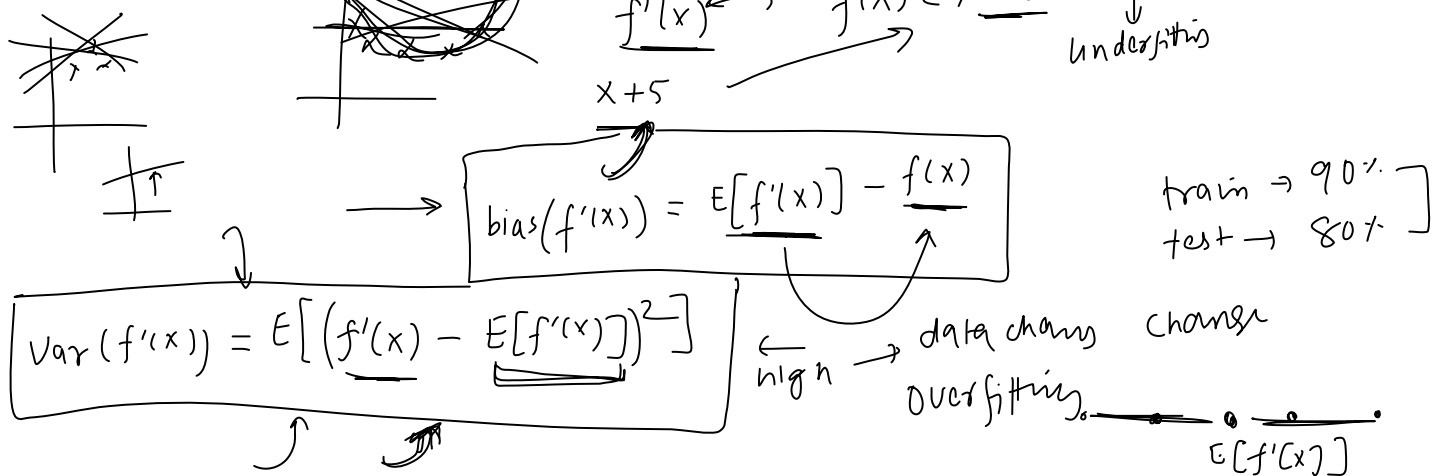 f'(x)
underfitting
x+5
bias(f'(x)) = E[f'(x)] - f(x)
train → 90%
test → 80%
Var(f'(x)) = E[(f'(x) - E[f'(x)])²]
high → data chang change
overfitting
E[f'(x)]